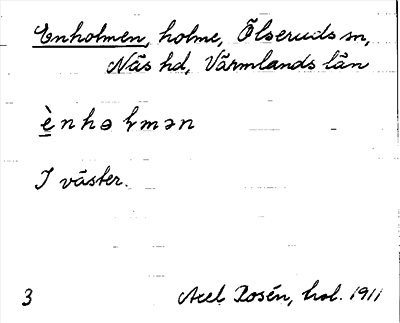 Enholmen, holme, Ölseruds sn,
Näs hd, Värmlands län
è n h ə ɫ m ə n
I väster.
3 Axel Rosén, hol. 1911